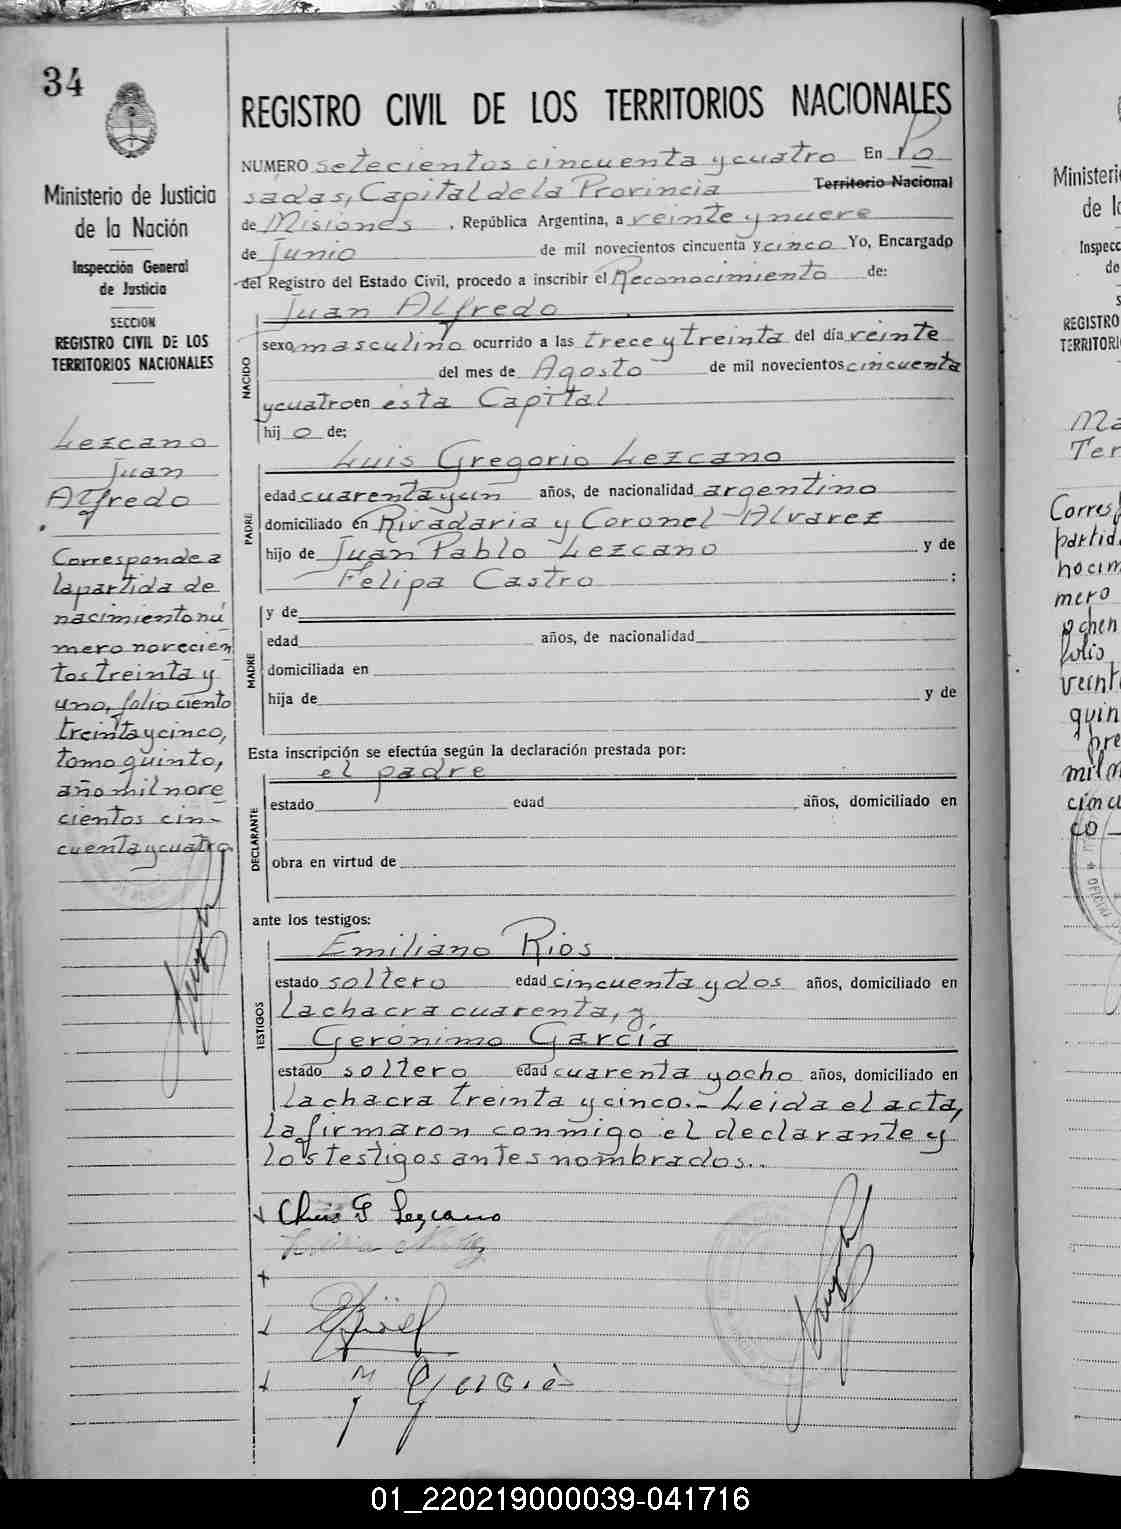 34
Ministerio de Justicia
de la Nación
Inspección General
de Justicia
SECCION
REGISTRO CIVIL DE LOS
TERRITORIOS NACIONALES
Lezcano
Juan
Alfredo
Corresponde a
la partida de
nacimiento nú
mero novecien
tos treinta y
uno, folio ciento
treinta y cinco,
tomo quinto,
año mil nove
cientos cin-
cuenta y cuatro.
REGISTRO CIVIL DE LOS TERRITORIOS NACIONALES
NUMERO setecientos cincuenta y cuatro En Po
sadas, Capital de la Provincia Territorio Nacional
de Misiones, República Argentina, a veinte y nueve
de Junio de mil novecientos cincuenta y cinco Yo, Encargado
del Registro del Estado Civil, procedo a inscribir el Reconocimiento de:
Juan Alfredo
NACIDO
sexo masculino ocurrido a las trece y treinta del día veinte
del mes de Agosto de mil novecientos cincuenta
y cuatro en esta Capital
hij o de;
Luis Gregorio Lezcano
PADRE
edad cuarenta y un años, de nacionalidad argentino
domiciliado en Rivadavia y Coronel Alvarez
hijo de Juan Pablo Lezcano y de
Felipa Castro ;
y de
MADRE
edad años, de nacionalidad
domiciliada en
hija de y de
Esta inscripción se efectúa según la declaración prestada por:
el padre
DECLARANTE
estado edad años, domiciliado en
obra en virtud de
ante los testigos:
Emiliano Rios
TESTIGOS
estado soltero edad cincuenta y dos años, domiciliado en
la chacra cuarenta, y
Gerónimo García
estado soltero edad cuarenta y ocho años, domiciliado en
la chacra treinta y cinco.- Leida el acta,
la firmaron conmigo el declarante y
los testigos antes nombrados..
Luis G Lezcano
García
Ministeri
de la
Inspecc
de
REGISTRO
TERRITORI
Ma
Ter
Corres
partid
nocim
mero
ochen
folio
veint
quin
pre
mil n
cincu
co
01_220219000039-041716